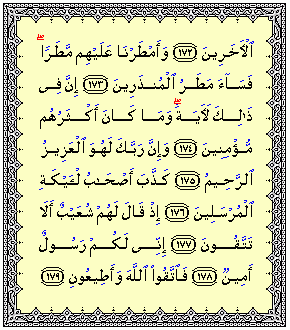 ٱلْأٓخَرِينَ ﴿١٧٢﴾ وَأَمْطَرْنَا عَلَيْهِم مَّطَرًاۖ
فَسَآءَ مَطَرُ ٱلْمُنذَرِينَ ﴿١٧٣﴾ إِنَّ فِى
ذَٰلِكَ لَأٓيَةًۖ وَمَا كَانَ أَكْثَرُهُم
مُّؤْمِنِينَ ﴿١٧٤﴾ وَإِنَّ رَبَّكَ لَهُوَ ٱلْعَزِيزُ
ٱلرَّحِيمُ ﴿١٧٥﴾ كَذَّبَ أَصْحَٰبُ لْـَٔيْكَةِ
ٱلْمُرْسَلِينَ ﴿١٧٦﴾ إِذْ قَالَ لَهُمْ شُعَيْبٌ أَلَا
تَتَّقُونَ ﴿١٧٧﴾ إِنِّى لَكُمْ رَسُولٌ
أَمِينٌ ﴿١٧٨﴾ فَٱتَّقُوا۟ ٱللَّهَ وَأَطِيعُونِ ﴿١٧٩﴾